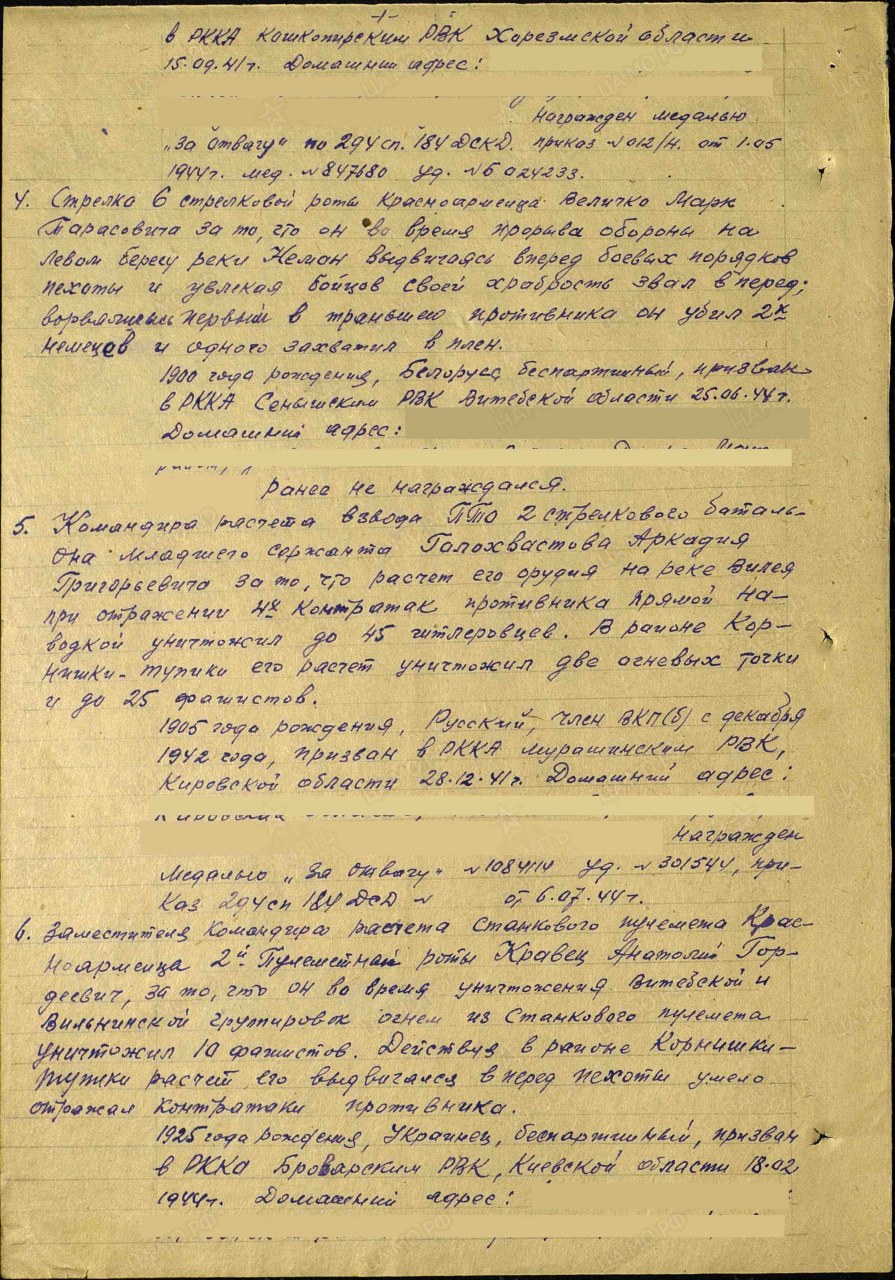 в РККА Кошкопирским РВК Хорезмской области
15.09.41г. Домашний адрес:
Награжден медалью
„За отвагу" по 294 сп. 184 ДСКД. приказ №012/н. от 1.05
1944г. мед. №847680 уд. №Б 024233.
4. Стрелка 6 стрелковой роты красноармейца Величко Марк
Тарасовича за то, что он во время прорыва обороны на
левом берегу реки Неман выдвигаясь вперед боевых порядков
пехоты и увлекая бойцов своей храбрость звал вперед;
первый в траншею противника он убил 2х
немецев и одного захватил в плен.
1900 года рождения, Белорус, беспартийный, призван
в РККА Сеньшским РВК Витебской области 25.06.44г.
Домашний адрес:
Ранее не награждался.
5. Командира расчета взвода ПТО 2 стрелкового баталь-
она младшего сержанта Галохвастова Аркадия
Григорьевича за то, что расчет его орудия на реке Вилея
при отражении 4х контратак противника прямой на-
водкой уничтожил до 45 гитлеровцев. В районе Кор-
нишки-тупики его расчет уничтожил две огневых точки
и до 25 фашистов.
1905 года рождения, Русский, член ВКП(б) с декабря
1942 года, призван в РККА Мурашинским РВК,
Кировской области 28.12.41г. Домашний адрес:
Награжден
медалью „За отвагу" №1084114 уд. №301544, при-
каз 294 сп 184 ДСД № от 6.07.44г.
6. Заместителя командира расчета станкового пулемета крас-
ноармейца 2й Пулеметной роты Кравец Анатолий Гор-
деевич, за то, что он во время уничтожения Витебской и
Вильнинской группировок огнем из станкового пулемета
уничтожил 10 фашистов. Действуя в районе Корнишки-
тупики расчет его выдвигался вперед пехоты умело
отражал контратаки противника.
1925 года рождения, Украинец, беспартийный, призван
в РККА Броварским РВК, Киевской области 18.02
1944г. Домашний адрес: